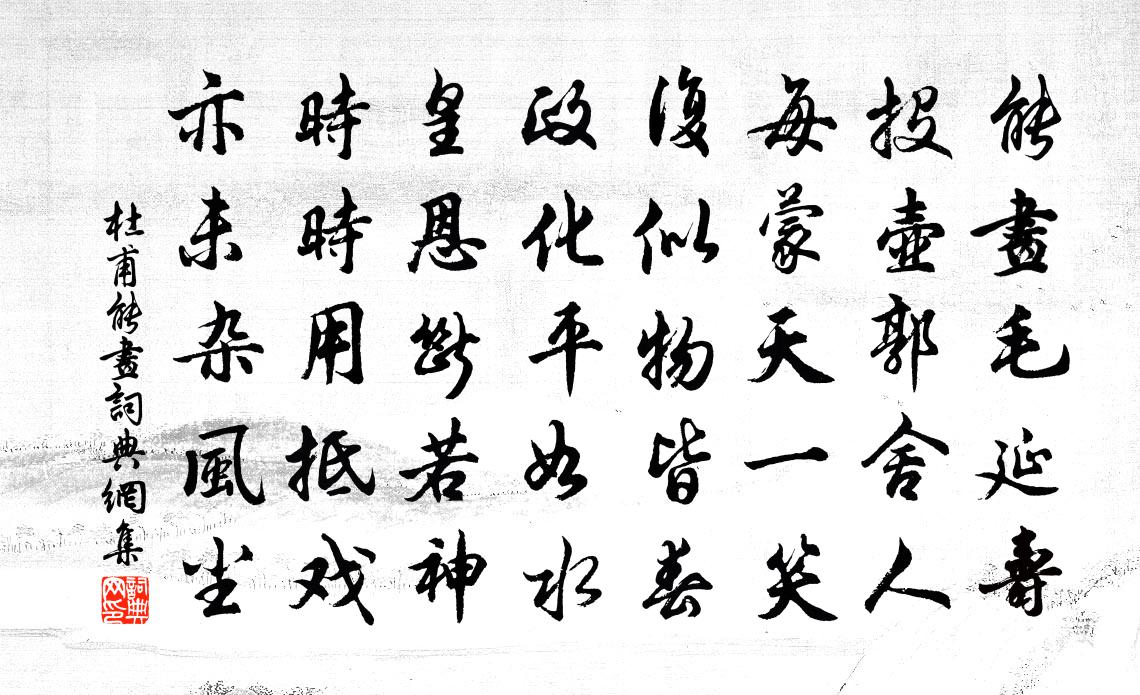 能畫毛延壽
投壺郭舍人
每蒙天一笑
復似物皆春
政化平如水
皇恩斷若神
時時用抵戏
亦未杂風尘
杜甫能畫詞典網集
詞典网印